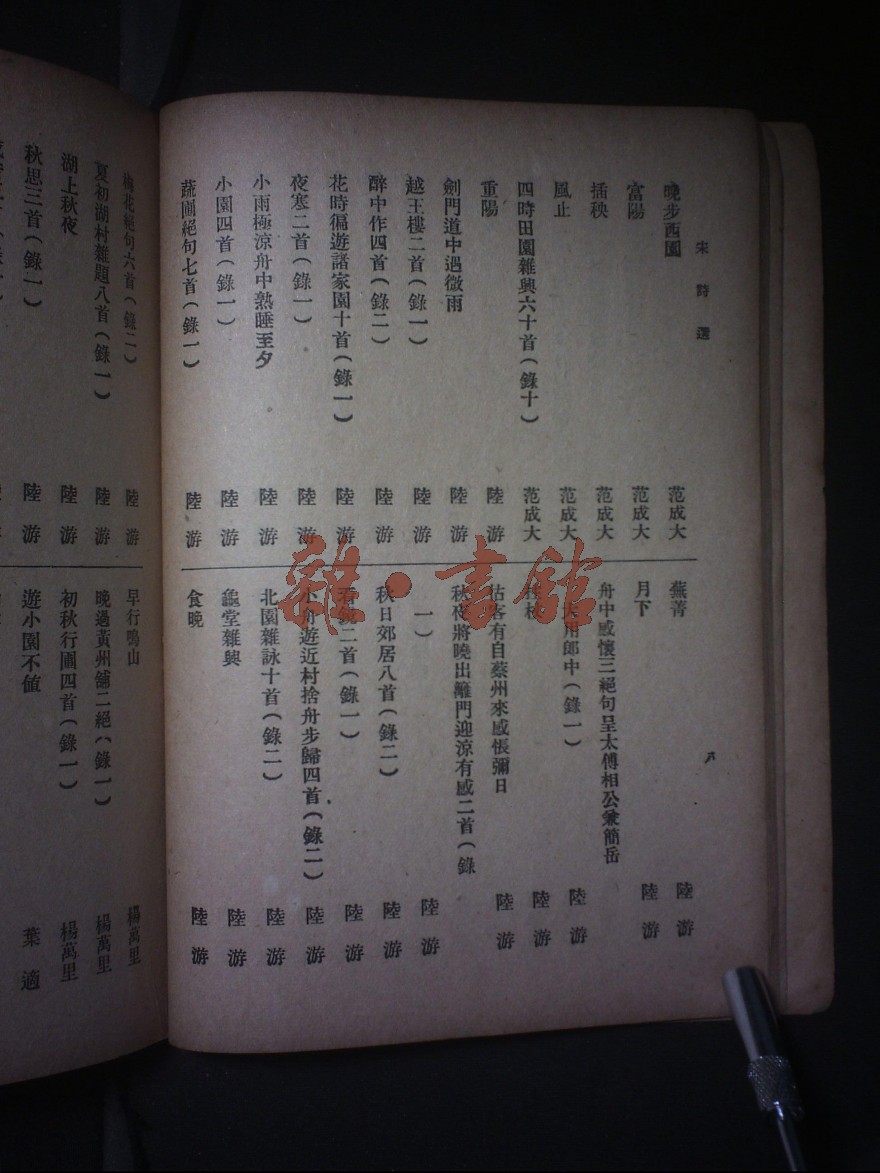 宋詩選
晚步西園 范成大
富陽 范成大
插秧 范成大
風止 范成大
四時田園雜興六十首(錄十) 范成大
重陽 陸游
劍門道中遇微雨 陸游
越王樓二首(錄一) 陸游
醉中作四首(錄二) 陸游
花時徧遊諸家園十首(錄一) 陸游
夜寒二首(錄一) 陸游
小雨極涼舟中熟睡至夕 陸游
小園四首(錄一) 陸游
蔬圃絕句七首(錄一) 陸游
蕪菁 陸游
月下 陸游
舟中感懷三絕句呈太傅相公兼簡岳
用郎中(錄一) 陸游
枕 陸游
估客有自蔡州來感悵彌日 陸游
秋夜將曉出籬門迎涼有感二首(錄
一) 陸游
秋日郊居八首(錄二) 陸游
二首(錄一) 陸游
小舟遊近村捨舟步歸四首(錄二) 陸游
北園雜詠十首(錄二) 陸游
龜堂雜興 陸游
食晚 陸游
梅花絕句六首(錄二) 陸游
夏初湖村雜題八首(錄一) 陸游
湖上秋夜 陸游
秋思三首(錄一) 陸游
早行鳴山 楊萬里
晚過黃州舖二絕(錄一) 楊萬里
初秋行圃四首(錄一) 楊萬里
遊小園不値 葉適
雜·書館